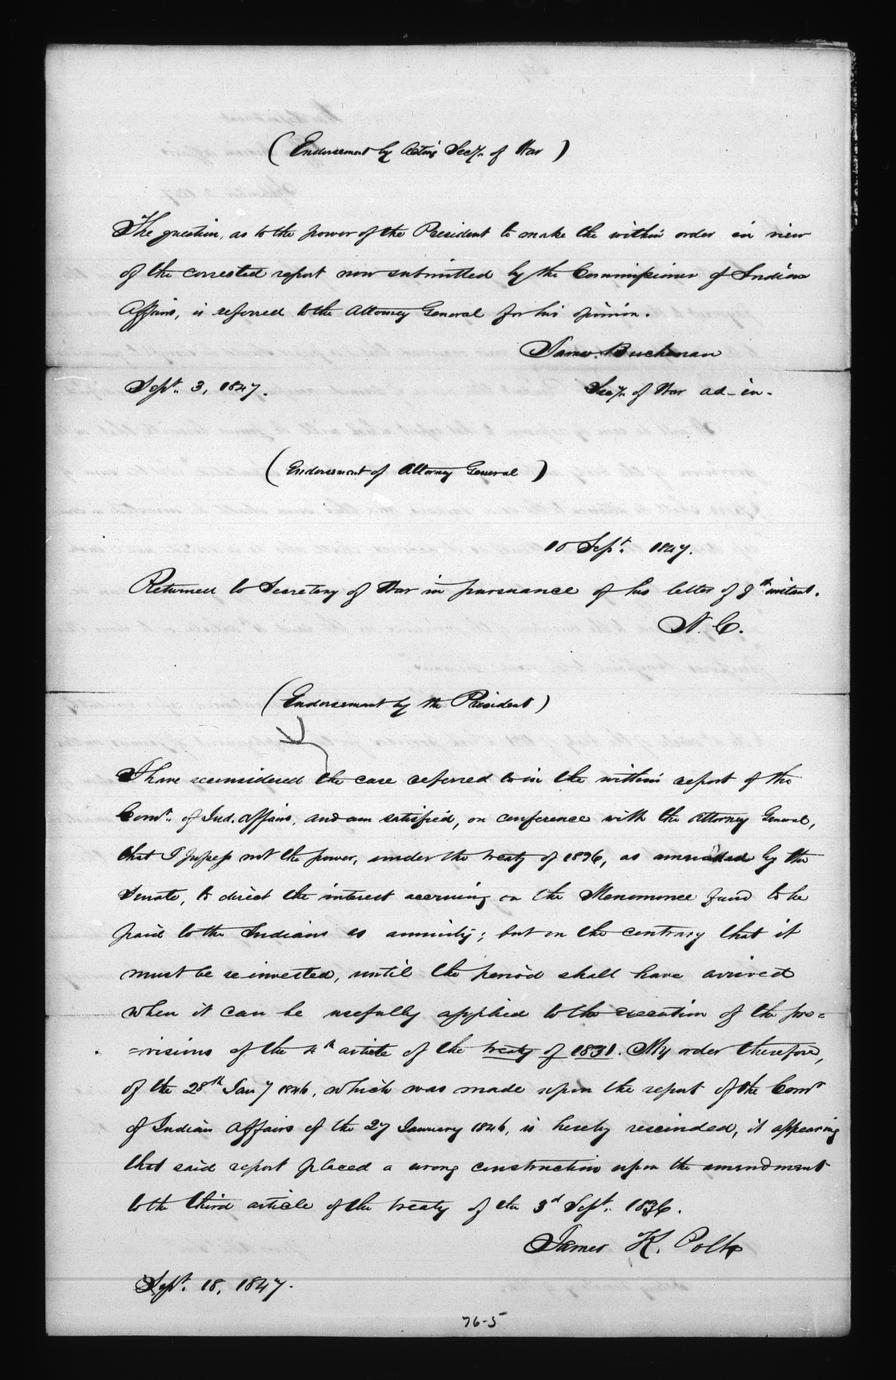 (Endorsement by Acting Secy. of War)
The question, as to the power of the President to make the within order in view
of the corrected report now submitted by the Commissioner of Indian
Affairs, is referred to the Attorney General for his opinion.
James Buchanan
Sept. 3, 1847. Secy. of War ad-in-
(Endorsement of Attorney General)
10 Sept. 1847.
Returned to Secretary of War in pursuance of his letter of 9th instant.
N. C.
(Endorsement by the President)
I have reconsidered the case referred to in the within report of the
Comr. of Ind. Affairs, and am satisfied, on conference with the Attorney General,
that I possess not the power, under the treaty of 1836, as amended by the
Senate, to direct the interest accruing on the Menomonee fund to be
paid to the Indians as annuity; but on the contrary that it
must be re-invested, until the period shall have arrived
when it can be usefully applied to the execution of the pro=
=visions of the 4th article of the treaty of 1831. My order therefore,
of the 28th Jany 1846, which was made upon the report of the Comr
of Indian Affairs of the 27 January 1846, is hereby rescinded, it appearing
that said report placed a wrong construction upon the amendment
to the third article of the treaty of the 3d Sept. 1836.
James K. Polk
Sept. 18, 1847.
76-5